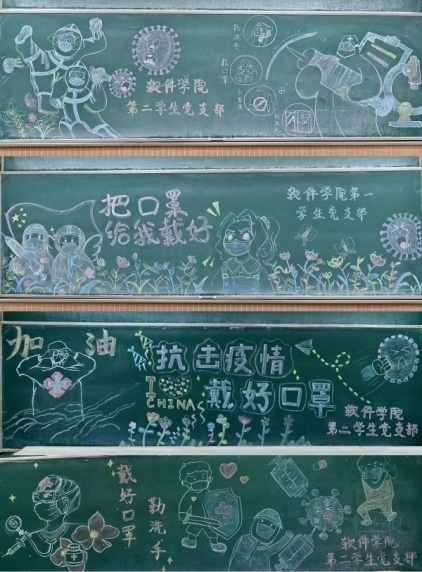 勤洗手
戴口罩
软件学院
第二学生党支部
把口罩
给我戴好
软件学院第一
学生党支部
加油
抗击疫情
I
CHINA
戴好口罩
软件学院
第二学生党支部
戴好口罩
勤洗手
软件学院
第二学生党支部